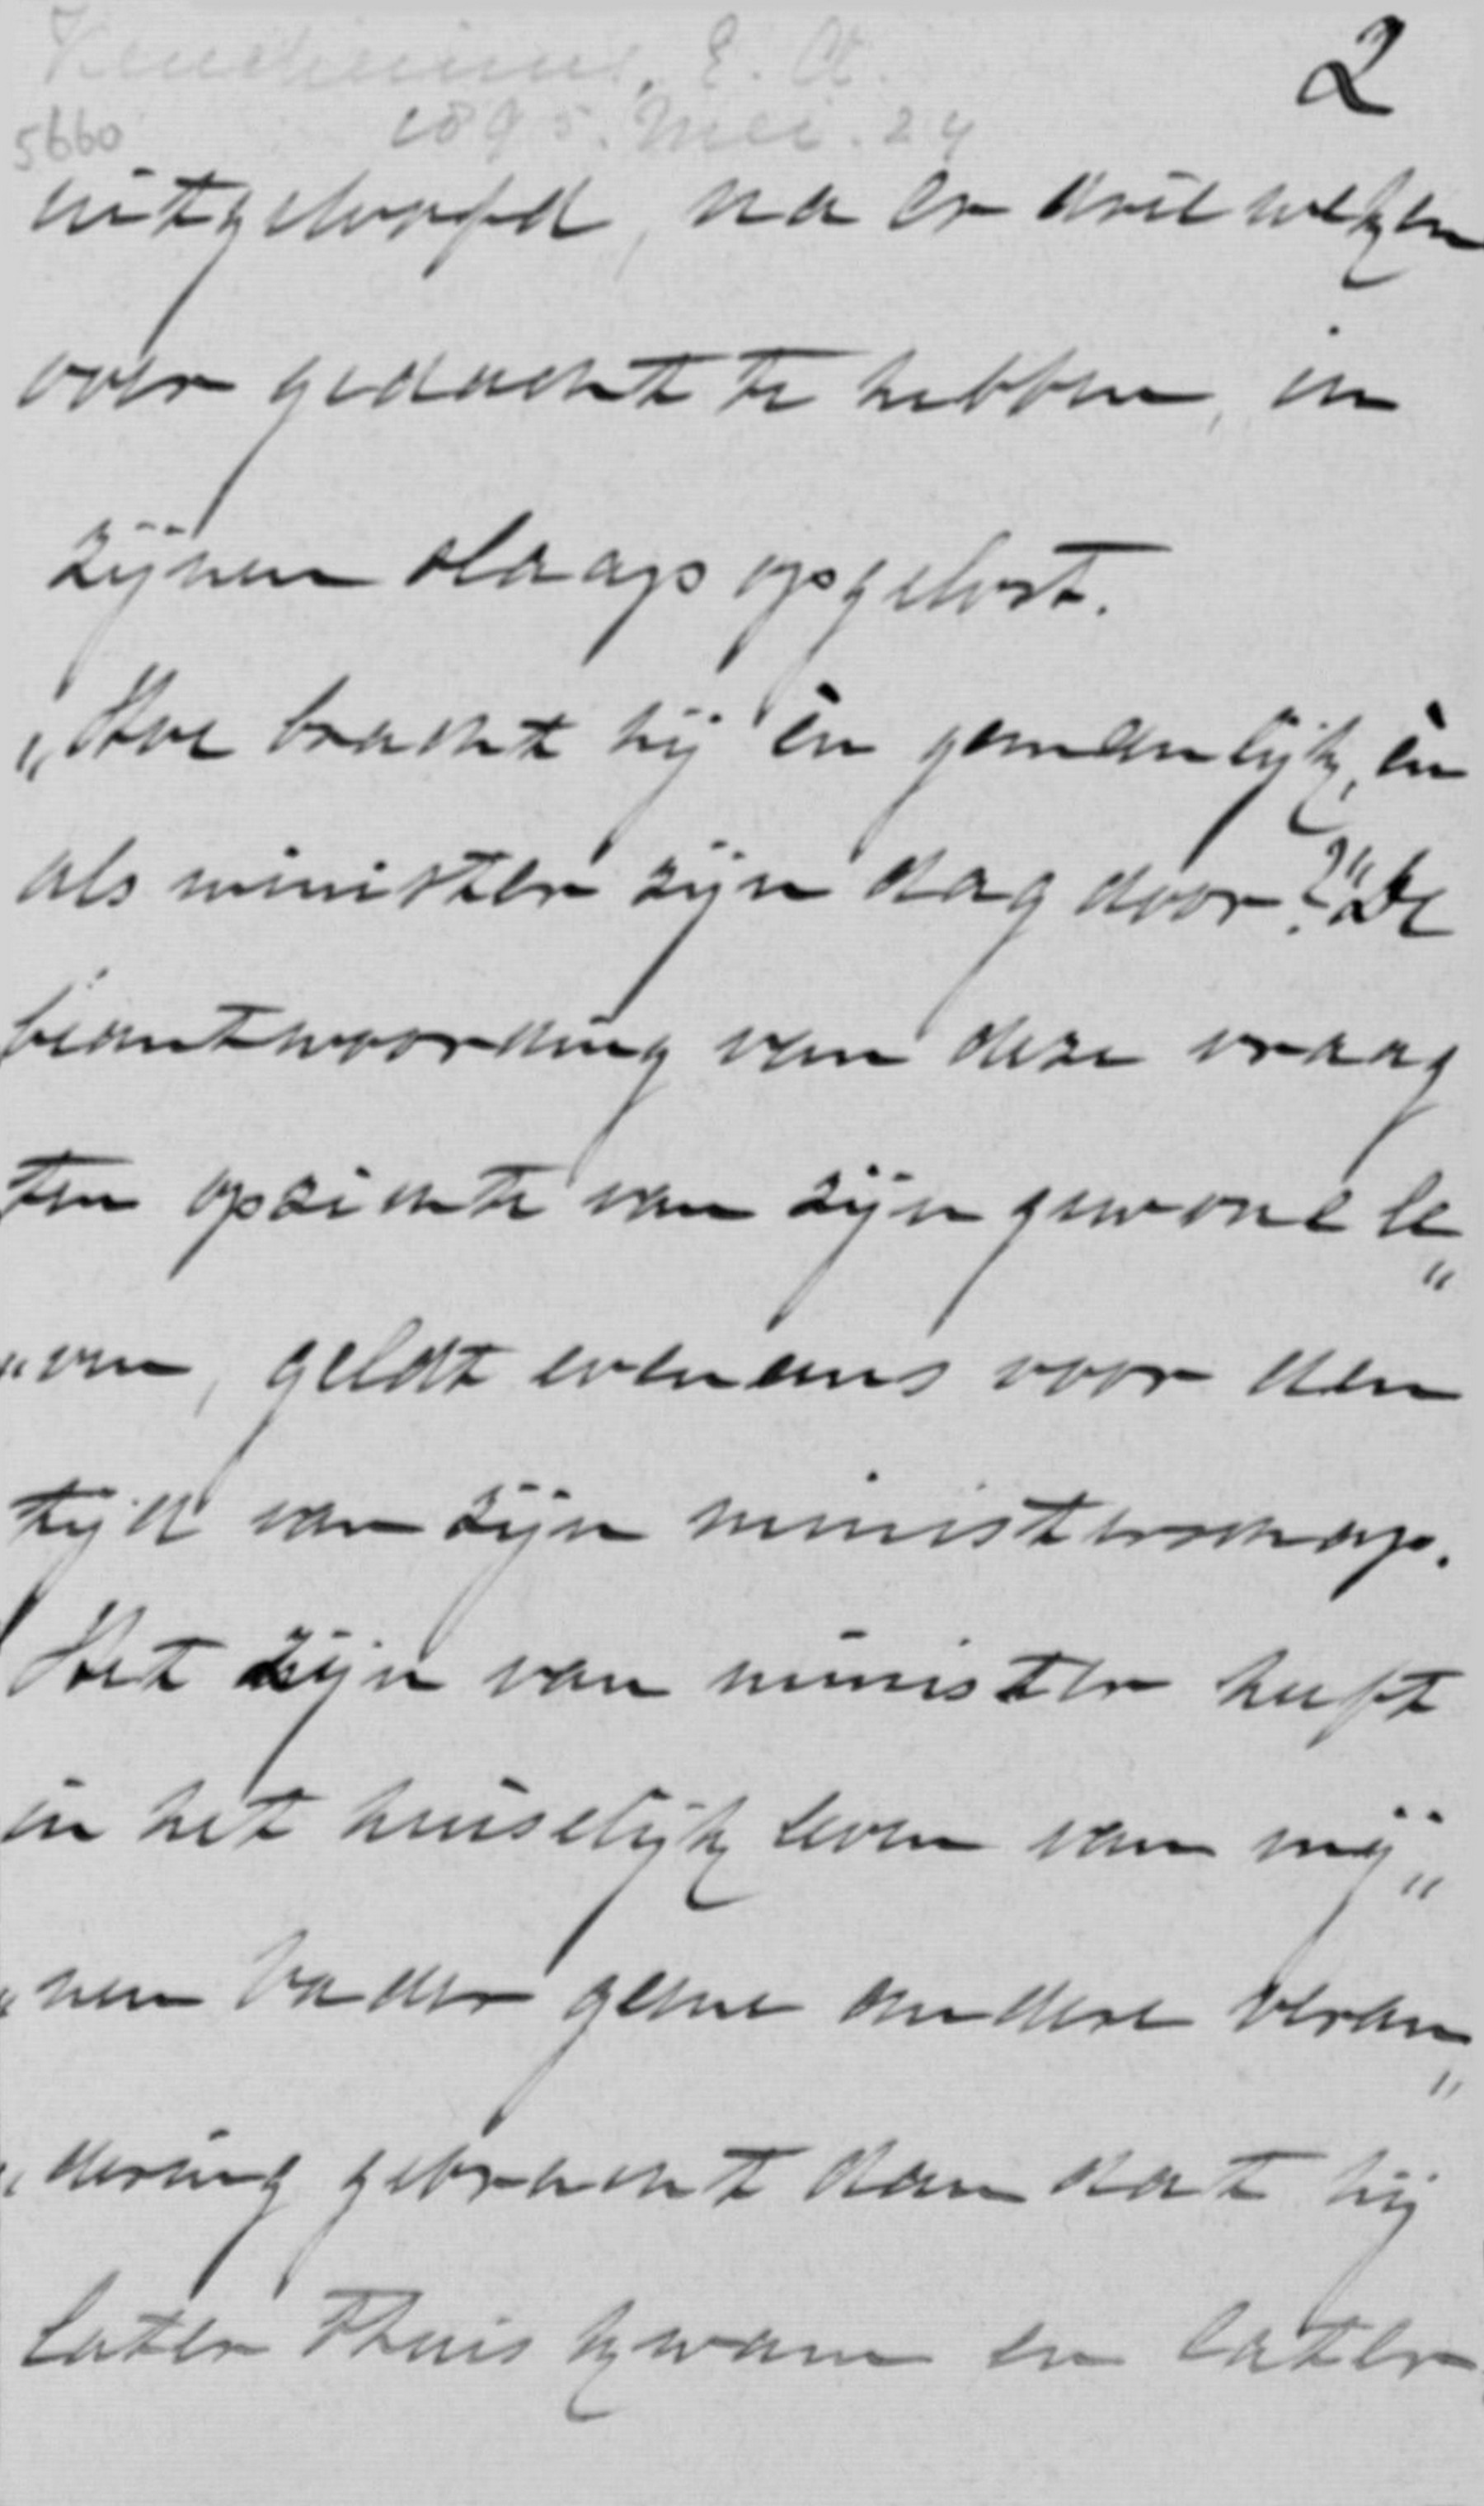 2
E. A.
5660 1895. Mei. 24
uitgeloofd, na er drie weken
over gedacht te hebben, in
zijnen slaap opgelost.
„Hoe bracht hij èn gemeenlijk, èn
als minister zijn dag door?" De
beantwoording van deze vraag
ten opzichte van zijn gewone le„
„ven, geldt eveneens voor den
tijd van zijn ministerschap.
Het zijn van minister heeft
in het huiselijk leven van mij„
„nen Vader geene andere veran„
„dering gebracht dan dat hij
later thuis kwam en later